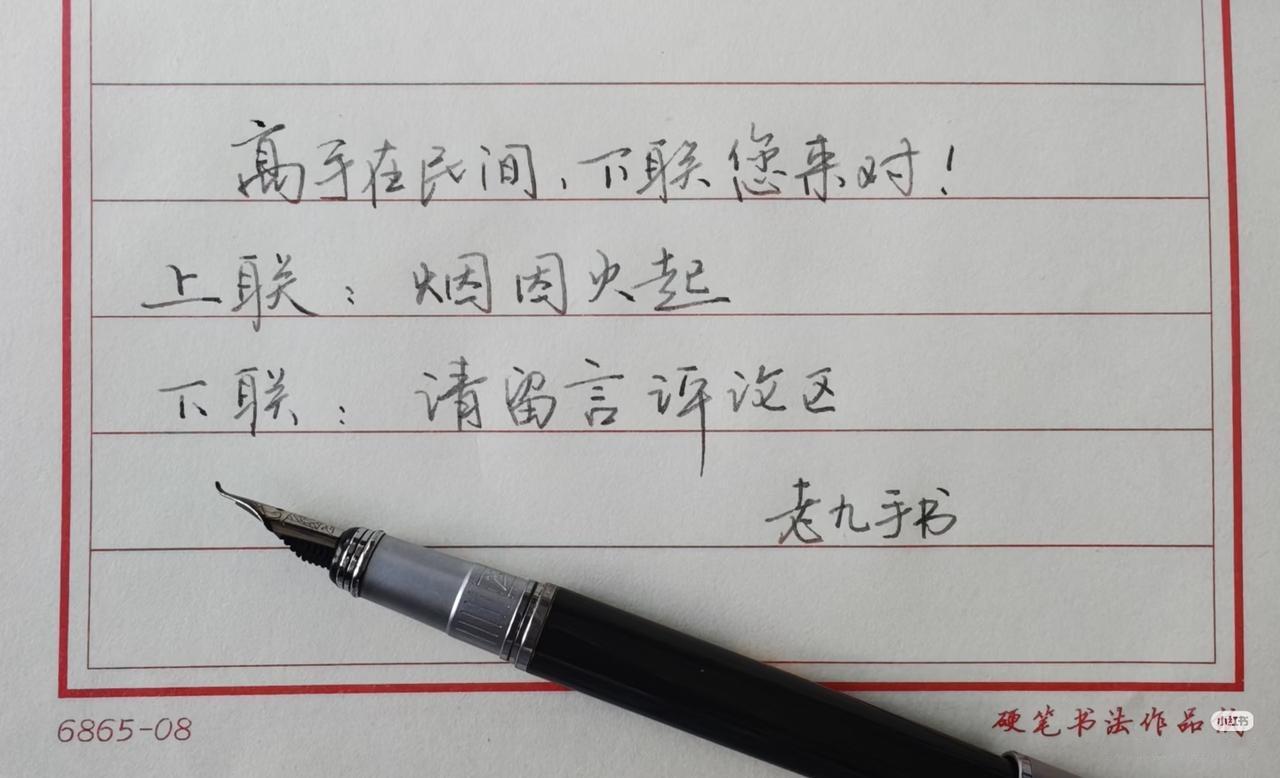 高手在民间，下联您来对！
上联：烟因火起
下联：请留言评论区
老九手书
6865-08
硬笔书法作品
小红书